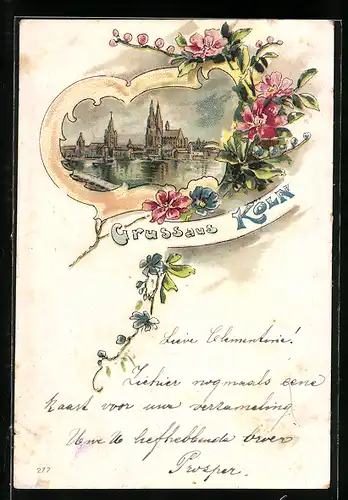 Gruss aus KÖLN
Lieve Clementine!
Ziehier nogmaals eene
kaart voor uwe verzameling
Uwe liefhebbende broer
Prosper.
277